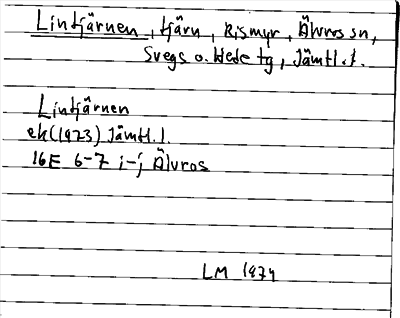 Lintjärnen, tjärn, Rismyr, Älvros sn,
Svegs o. Hede tg, Jämtl. l.
Lintjärnen
ek (1973) Jämtl. l.
16E 6-7 i-j Älvros
LM 1974